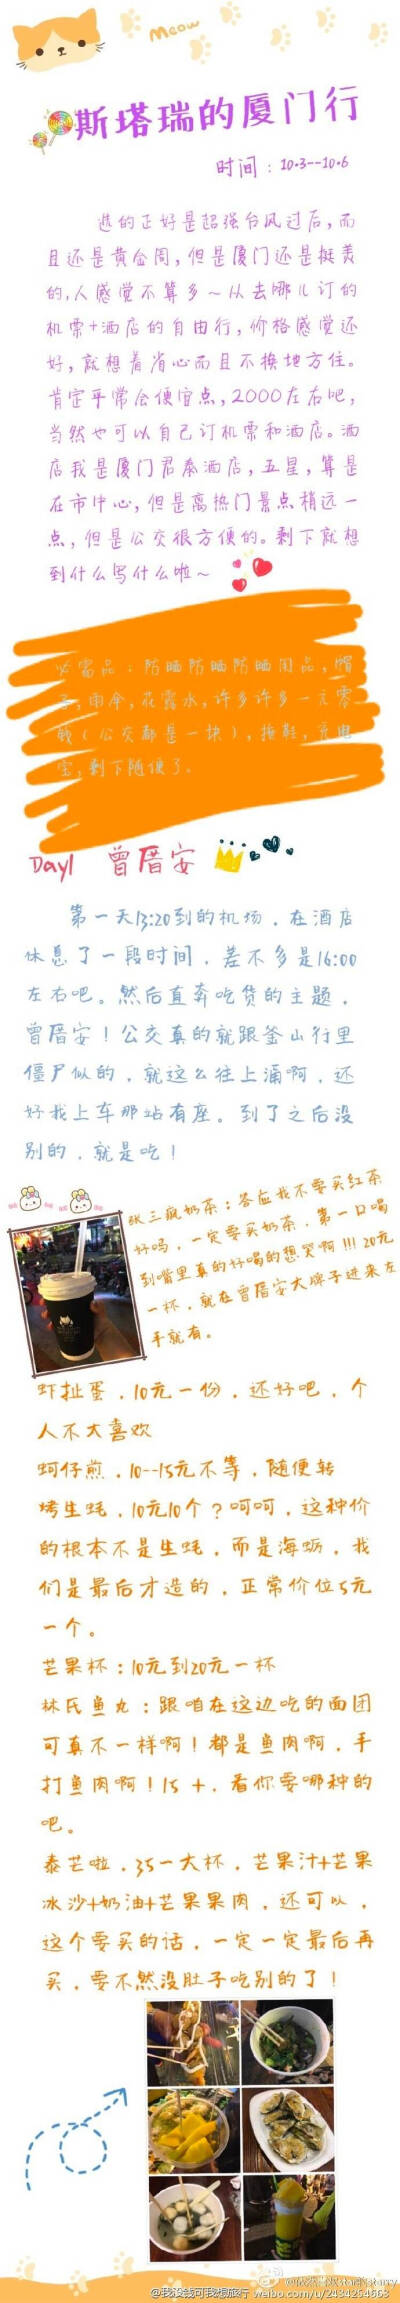 Meow
斯塔瑞的厦门行
时间：10.3--10.6
进的正好是超强台风过后,而
且还是黄金周,但是厦门还是挺美
的,人感觉不算多~从去哪儿订的
机票+酒店的自由行,价格感觉还
好,就想着省心而且不换地方住。
肯定平常会便宜点,2000左右吧,
当然也可以自己订机票和酒店。酒
店我是厦门君泰酒店,五星,算是
在市中心,但是离热门景点稍远一
点,但是公交很方便的。剩下就想
到什么写什么啦~
必需品：防晒防晒防晒用品,帽
子,雨伞,花露水,许多许多一元零
钱(公交都是一块),拖鞋,充电
宝,剩下随便了.
Day1 曾厝安
第一天13:20到的机场,在酒店
休息了一段时间,差不多是16:00
左右吧。然后直奔吃货的主题,
曾厝安!公交真的就跟釜山行里
僵尸似的,就这么往上涌啊,还
好我上车那站有座。到了之后没
别的,就是吃!
张三疯奶茶:答应我不要买红茶
好吗,一定要买奶茶,第一口喝
到嘴里真的好喝的想哭啊!!!20元
一杯,就在曾厝安大牌子进来左
手就有。
虾扯蛋,10元一份,还好吧,个
人不大喜欢
蚵仔煎,10--15元不等,随便转
烤生蚝,10元10个?呵呵,这种价
的根本不是生蚝,而是海蛎,我
们是最后才造的,正常价位5元
一个。
芒果杯:10元到20元一杯
林氏鱼丸:跟咱在这边吃的面团
可真不一样啊!都是鱼肉啊,手
打鱼肉啊!15+,看你要哪种的
吧。
泰芒啦,35一大杯,芒果汁+芒果
冰沙+奶油+芒果果肉,还可以,
这个要买的话,一定一定最后再
买,要不然没肚子吃别的了!
@我没钱可我想旅行 weibo.com/u/2434254663